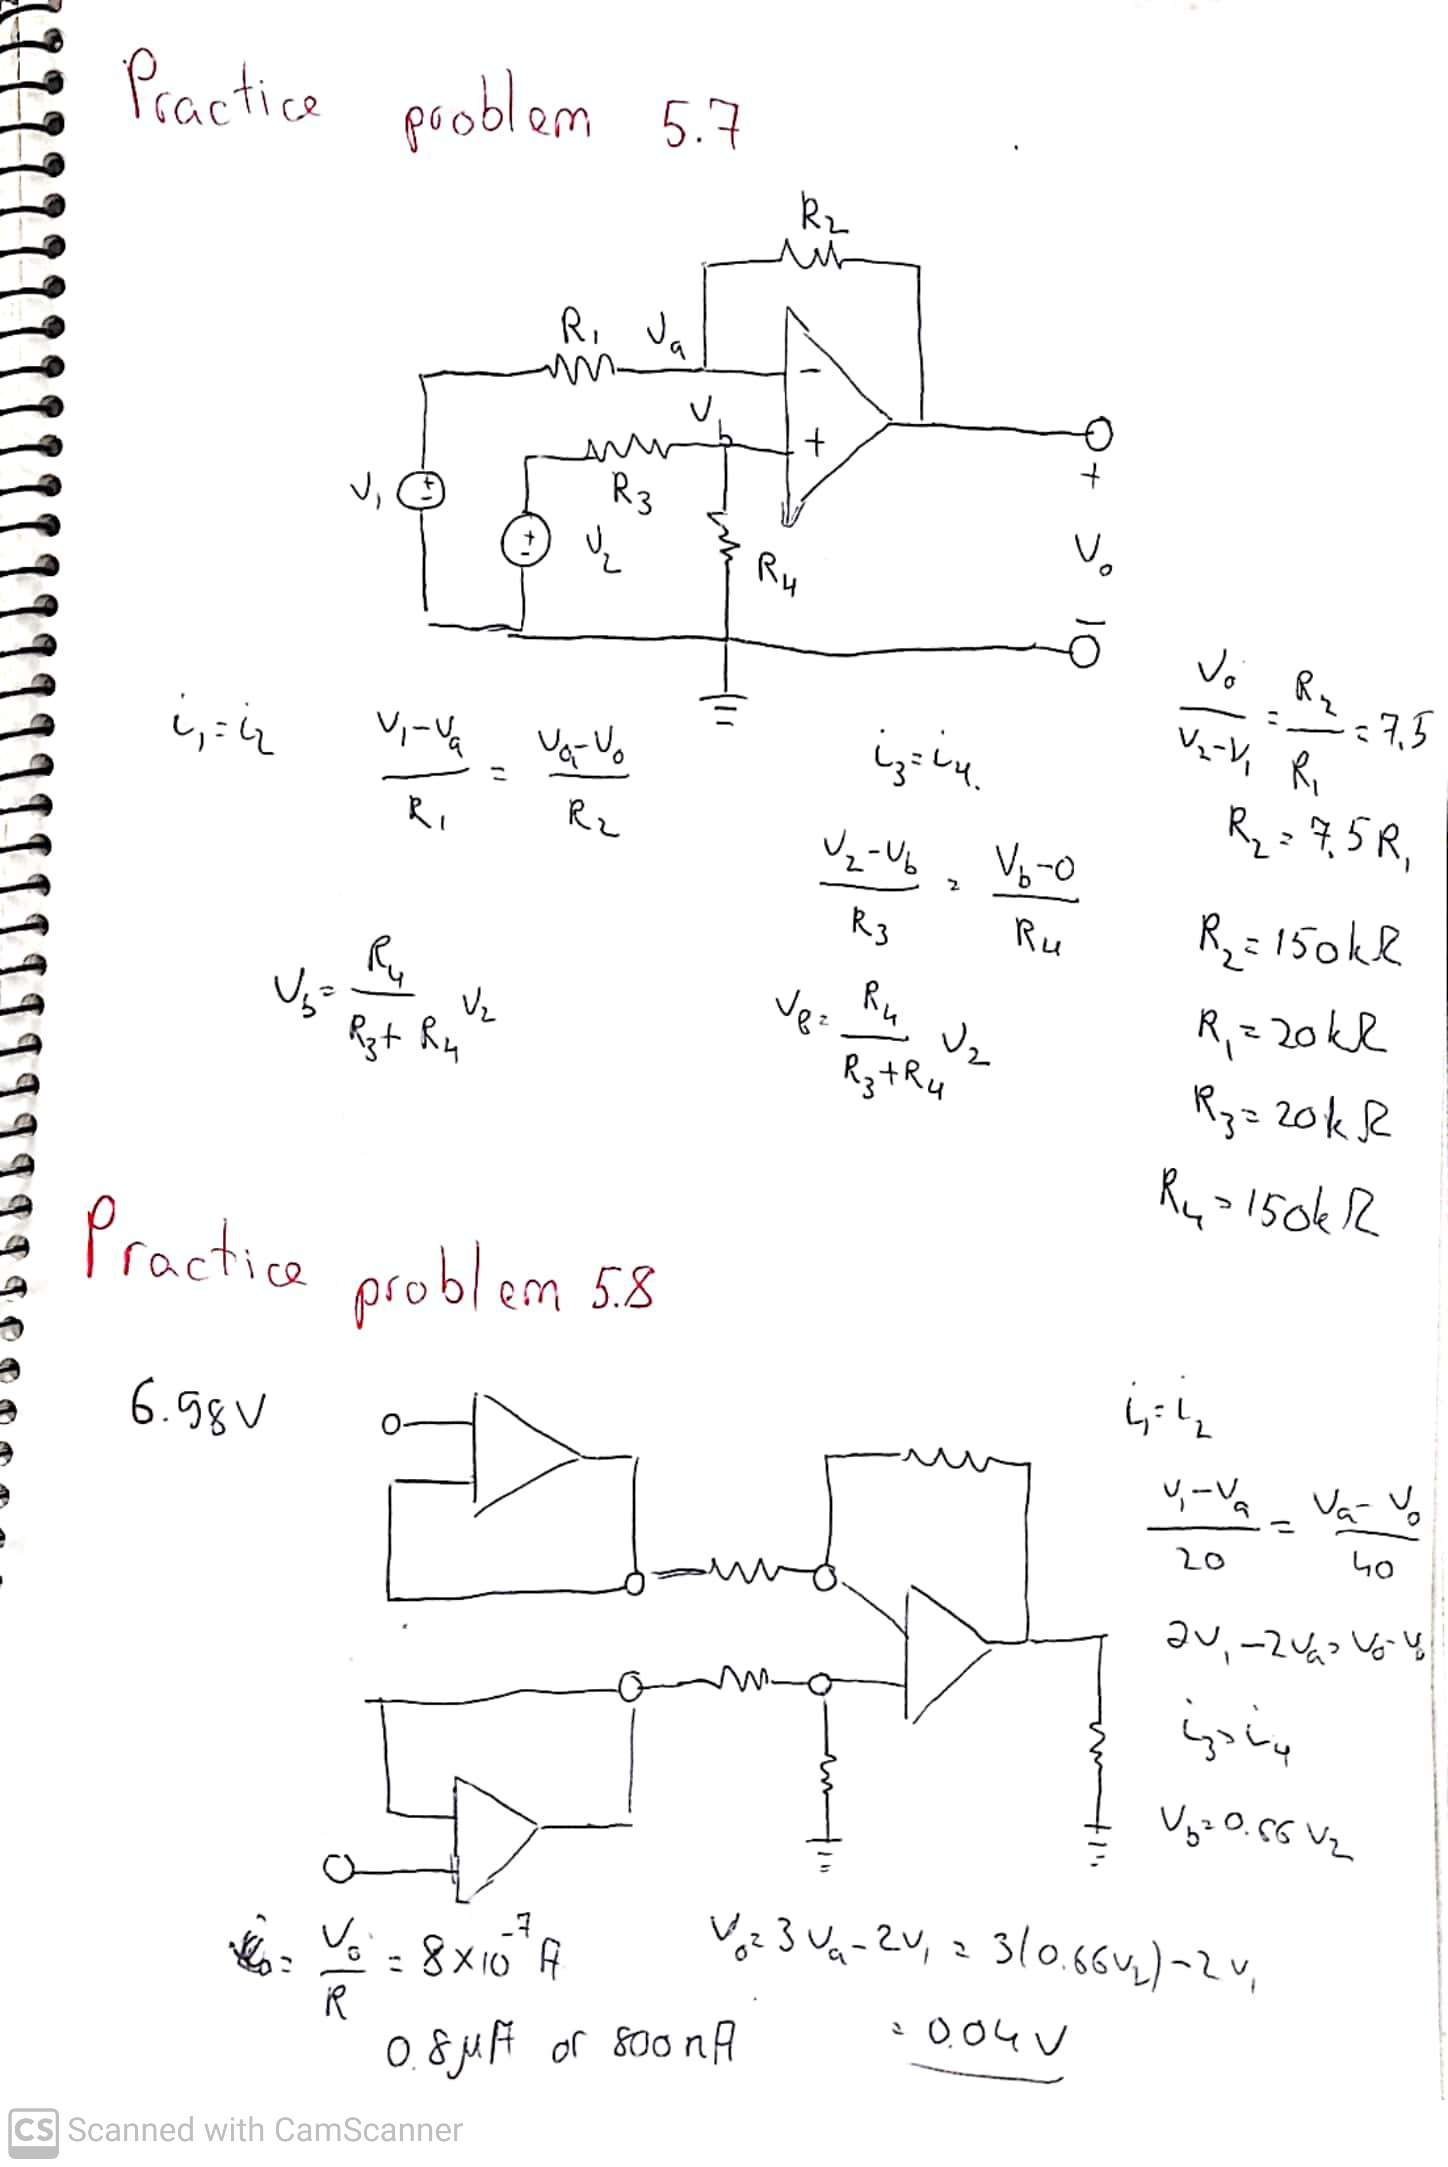 Practice problem 5.7
R₂
R₁ Va
−
V b
+
V₁ + −
R₃
+ −
V₂
R₄
+
Vo
−
i₁ = i₂
(V₁ − Va)/R₁ = (Va − Vo)/R₂
i₃ = i₄.
(V₂ − Vb)/R₃ = (Vb − 0)/R₄
Vb = R₄/(R₃ + R₄) V₂
Vb = R₄/(R₃ + R₄) V₂
Vo/(V₂ − V₁) = R₂/R₁ = 7,5
R₂ = 7.5 R₁
R₂ = 150kΩ
R₁ = 20kΩ
R₃ = 20kΩ
R₄ = 150kΩ
Practice problem 5.8
6.98V
i₁ = i₂
(V₁ − Va)/20 = (Va − Vo)/40
2V₁ − 2Va =
i₃ = i₄
Vb = 0.66 V₂
= Vo/R = 8×10⁻⁷ A
0.8μA or 800nA
Vo = 3Va − 2V₁ = 3(0.66V₂) − 2V₁
= 0.04 V
CS Scanned with CamScanner